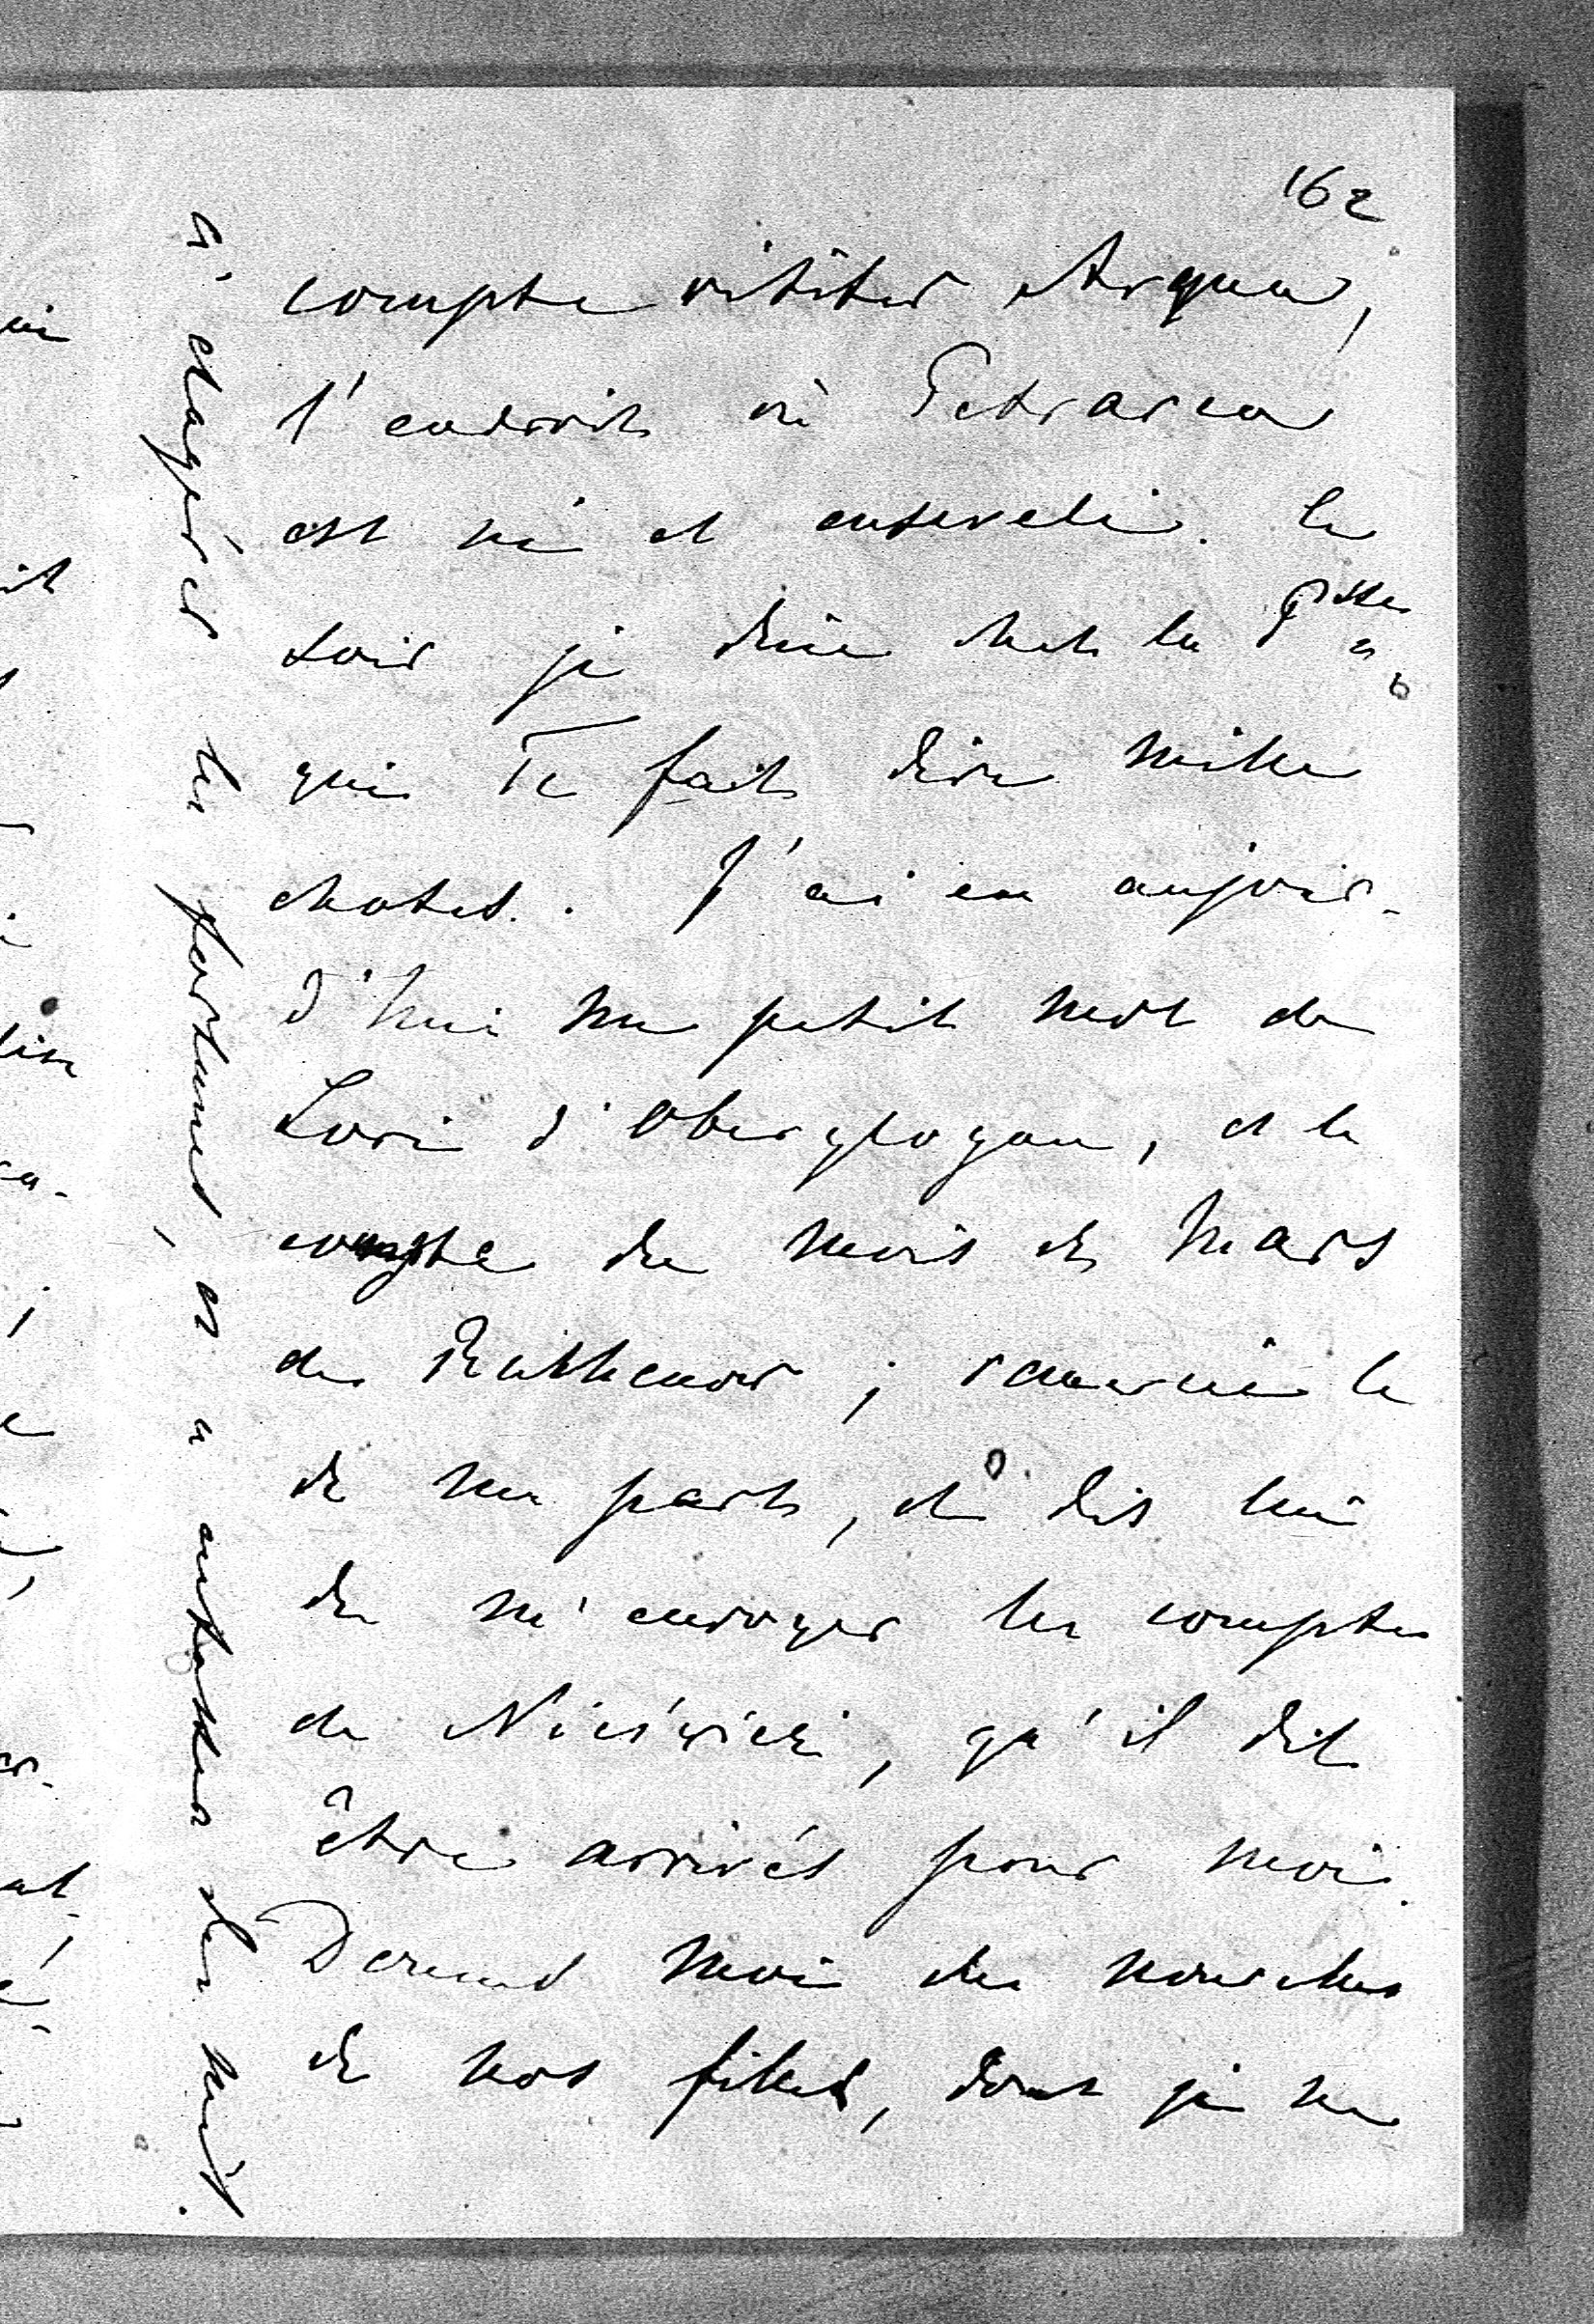 162
compte visiter Arqua,
l'endroit où Petrarca
est né et enseveli. Le
soir je dîne chez la Psse
qui Te fait dire mille
choses. J'ai eu aujour-
d'hui un petit mot de
Lori d'Oberglogau, et le
compte du mois de Mars
de Ruthenow ; remercie le
de ma part, et dis lui
de m'envoyer les comptes
de Nieświeże, qu'il dit
être arrivés pour moi.
Donnes moi des nouvelles
de nos filles, dont je ne
exagérer les fortunes, on a